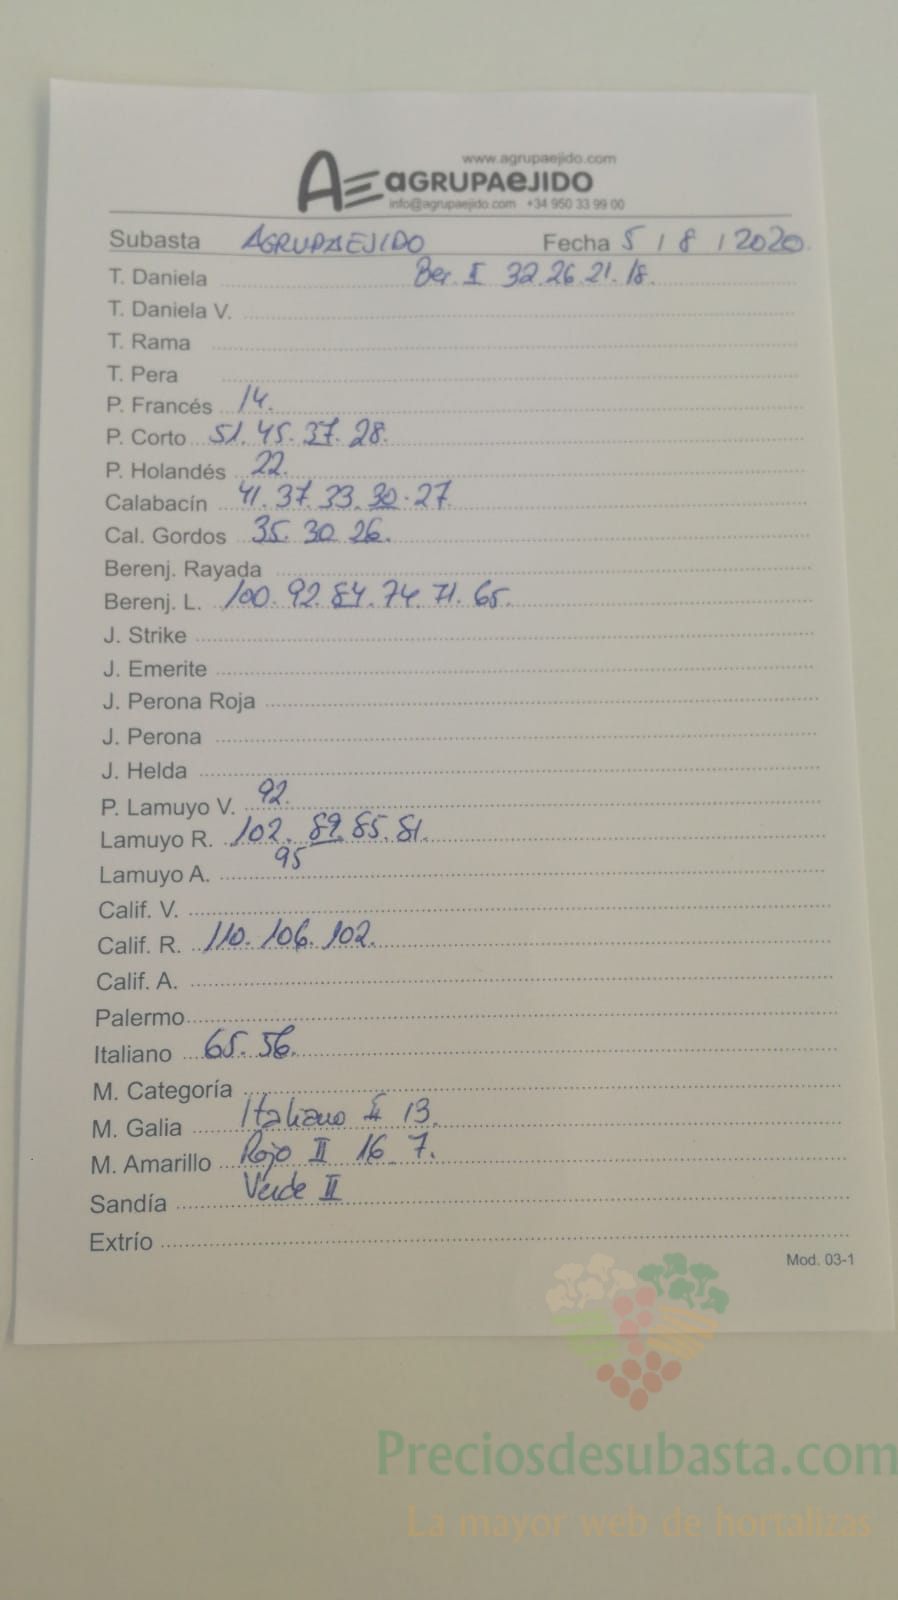 www.agrupaejido.com
AGRUPAEJIDO
info@agrupaejido.com +34 950 33 99 00
Subasta AGRUPAEJIDO Fecha 5 / 8 / 2020.
T. Daniela Ber. II 32. 26. 21. 18.
T. Daniela V.
T. Rama
T. Pera
P. Francés 14.
P. Corto 51. 45. 37. 28.
P. Holandés 22.
Calabacín 41. 37. 33. 30. 27.
Cal. Gordos 35. 30. 26.
Berenj. Rayada
Berenj. L. 100. 92. 84. 74. 71. 65.
J. Strike
J. Emerite
J. Perona Roja
J. Perona
J. Helda
P. Lamuyo V. 92.
Lamuyo R. 102. 89. 85. 81.
95
Lamuyo A.
Calif. V.
Calif. R. 110. 106. 102.
Calif. A.
Palermo
Italiano 65. 56.
M. Categoría
M. Galia Italiano II 13.
M. Amarillo Rojo II 16. 7.
Sandía Verde II
Extrío
Mod. 03-1
Preciosdesubasta.com
La mayor web de hortalizas